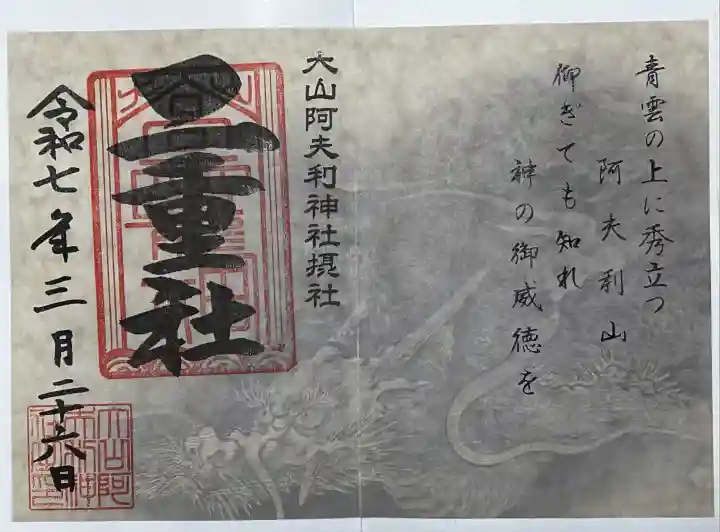 青雲の上に秀立つ
阿夫利山
御ぎても知れ
神の御威徳を
大山阿夫利神社摂社
二重社
令和七年三月二十六日